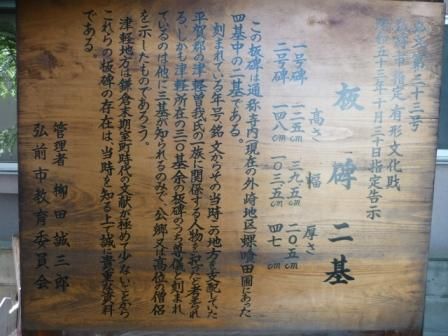 弘告第三十三号
弘前市指定有形文化財
昭和五十三年十月三十日指定告示
板碑二基
高さ 幅 厚さ
一号碑 一二五cm 三九.五cm 二〇.五cm
二号碑 一四八cm 一〇三.五cm 四七cm
この板碑は通称寺内(現在の外崎地区)螺喰田圃にあった
四基中の二基である。
刻まれている年号、銘文からその当時この地方を支配していた
平賀郡の津軽曽我氏の一族に関係する人物の碑などと考えられ
る。しかも津軽所在の三〇〇基余の板碑のうち尊儀と刻まれ
ているのは他に三基が知られるのみで、公郷又は高位の僧侶
を示したものであろう。
津軽地方は鎌倉末期室町時代の文献が極めて少ないことから
これらの板碑の存在は、当時を知る上で誠に貴重な資料
である。
管理者 柳田誠三郎
弘前市教育委員会